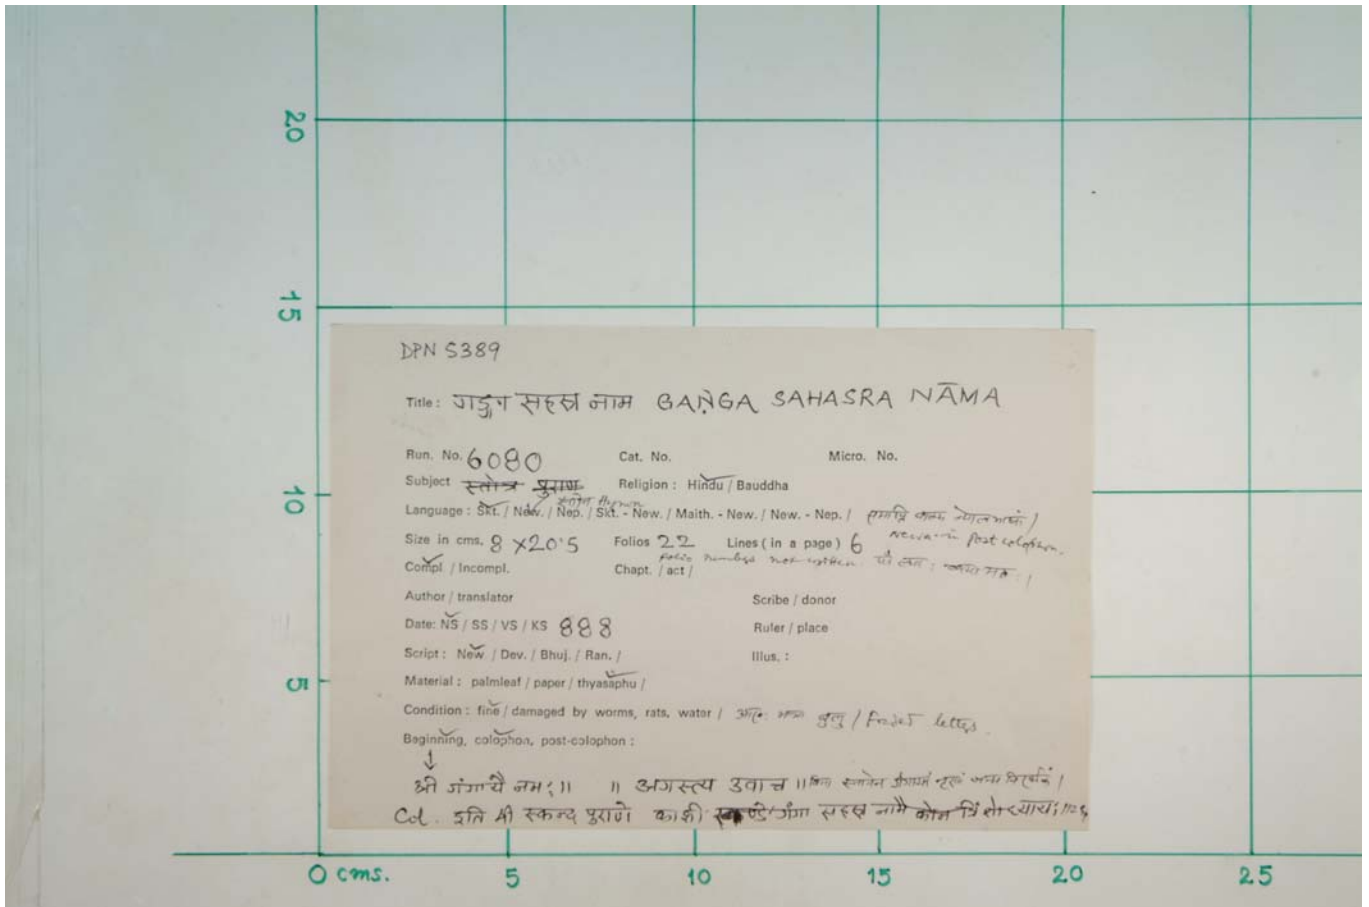 20
15
10
5
DPN 5389
Title: गङ्गा सहस्र नाम GAṄGA SAHASRA NĀMA
Run. No. 6080 Cat. No. Micro. No.
Subject स्तोत्र पुराण Religion: Hindu / Bauddha
Hymn
Language: Skt. / New. / Nep. / Skt. - New. / Maith. - New. / New. - Nep. /
in post colophon.
Size in cms. 8 x 20.5 Folios 22 Lines (in a page) 6
Folio numbers not written
Compl. / Incompl. Chapt. / act /
Author / translator Scribe / donor
Date: NS / SS / VS / KS 888 Ruler / place
Script: New. / Dev. / Bhuj. / Ran. / Illus.:
Material: palmleaf / paper / thyasaphu /
Condition: fine / damaged by worms, rats, water / letters
Beginning, colophon, post-colophon:
श्री गंगायै नमः ॥ ॥ अगस्त्य उवाच ॥
Col. इति श्री स्कन्द पुराणे काशी गंगा सहस्र
0 cms. 5 10 15 20 25